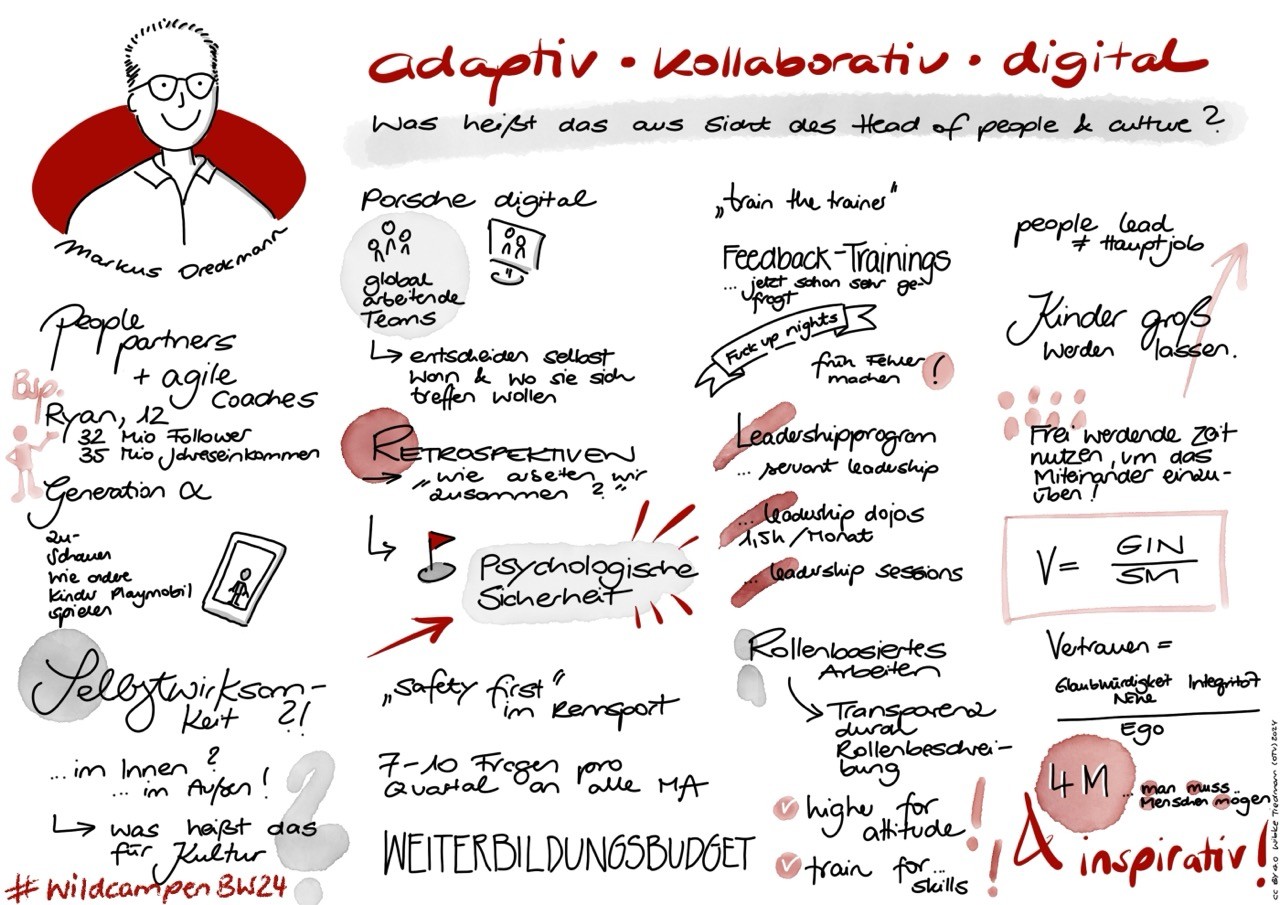 adaptiv • kollaborativ • digital
Was heißt das aus Sicht des Head of people & culture?
Markus Dreckmann
People
partners
+ agile
Coaches
Bsp.
Ryan, 12
32 Mio Follower
35 Mio Jahreseinkommen
Generation α
zu-
schauen
wie andere
Kinder Playmobil
spielen
Selbstwirksam-
keit ?!
...im Innen ?
... im Außen !
was heißt das
für Kultur
?
#WildcampenBW24
Porsche digital
global
arbeitende
Teams
entscheiden selbst
wann & wo sie sich
treffen wollen
RETROSPEKTIVEN
"wie arbeiten wir
zusammen ?"
Psychologische
Sicherheit
„Safety first“
im Rennsport
7-10 Fragen pro
Quartal an alle MA
WEITERBILDUNGSBUDGET
„train the trainer“
Feedback-Trainings
... jetzt schon sehr ge-
fragt
Fuck up nights
früh Fehler
machen !
Leadershipprogram
... servant leadership
... leadership dojos
1,5h/Monat
... leadership sessions
Rollenbasiertes
Arbeiten
Transparenz
durch
Rollenbeschrei-
bung
higher for
attitude !
train for...
skills !
people lead
≠ Hauptjob
Kinder groß
werden lassen.
Frei werdende Zeit
nutzen, um das
Miteinander einzu-
üben !
V = GIN
SM
Vertrauen =
Glaubwürdigkeit Integrität
Nähe
Ego
4M ... man muss..
Menschen mögen
& inspirativ!
CC BY 4.0 Wibke Tiedmann (OTV) 2024